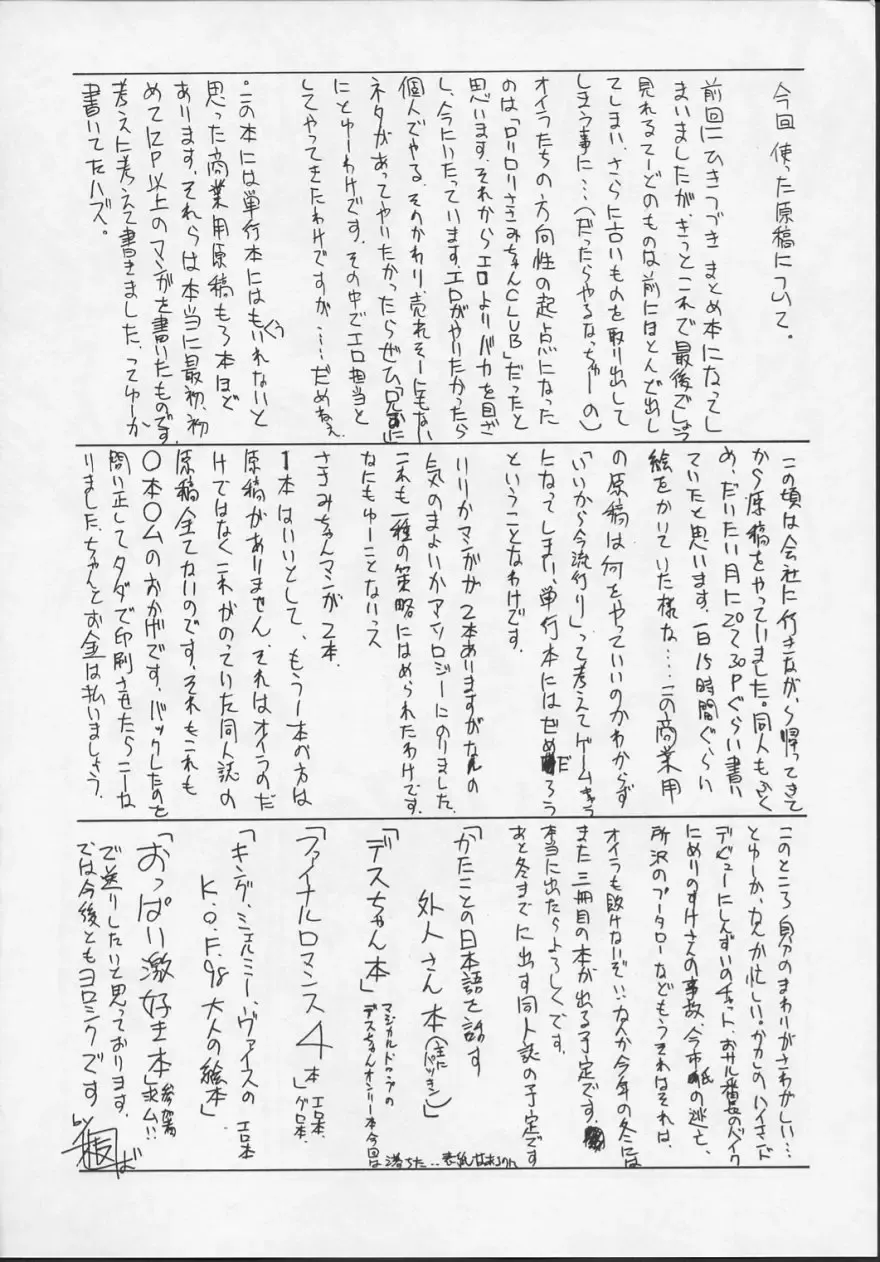 今回 使った原稿について。
前回にひきつづき まとめ本になってし
まいましたが、きっとこれで最後でしょう
見れるてーどのものは前にほとんど出し
てしまい、さらに古いものを取り出して
しまう事に…(だったらやるなっちゅーの)
オイラたちの方向性の起点になった
のは「ロリロリさきみちゃんCLUB」だったと
思います。それからエロよりバカを目ざ
し、今にいたっています。エロがやりたかったら
個人でやる、そのかわり、売れそーにもない
ネタがあってやりたかったらぜひ
にとゆーわけです。その中でエロ担当と
してやってきたわけですが……だめねぇ
・この本には単行本にはもぐりいれないと
思った商業用原稿も3本ほど
あります。それらは本当に最初、初
めて12P以上のマンガを書いたものです
考えに考えて書きました。ってゆーか
書いてたハズ。
この頃は会社に行きながら帰ってきて
から原稿をやっていました。同人もふく
め、だいたい月に20て30Pぐらい書い
ていたと思います。一日15時間ぐらい
絵をかいていた様な…。この商業用
の原稿は何をやっていいのかわからず
「いいから今流行り」って考えてゲームキャラ
になってしまい、単行本にはだめだろう
ということなわけです。
リリカマンガが2本ありますがなんの
気のまよいかアンソロジーにのりました
これも一種の策略にはめられたわけです。
なにもゆーことないっス
さきみちゃんマンガ2本。
1本はいいとして、もう1本の方は
原稿がありません。それはオイラのだ
けではなくこれがのっていた同人誌の
原稿全てないのです。それもこれも
〇本〇ムのおかげです。バックしたのと
問い正してタダで印刷させたらこーな
りました。ちゃんとお金は払いましょう。
このところ自分のまわりがさわがしい…
とゆーか、なんか忙しい。かかしのハイエンド
デビューにしんすいのチャット、おサル番長のバイク
にめりのすけさんの事故、今市紙の逃亡、
所沢のプータローなどもうそれはそれは、
オイラも敗けないぞい…なんか今年の冬には
また三冊目の本が出る予定です。
本当に出たらよろしくです。
あと冬までに出す同人誌の予定です
「かたことの日本語を話す
外人さん本(主にパツキン)」
「デスちゃん本」マジカルドロップの
デスちゃんオンリー本今回は
落ちた‥表紙
「ファイナルロマンス4本」エロ本、グロ本、
「キング、シェルミー、ヴァイスの エロ本
K.O.F.98大人の絵本」
「おっぱい激好き本」参加者求ム!!
で送りしたいと思っております。
では今後ともヨロシクです
by